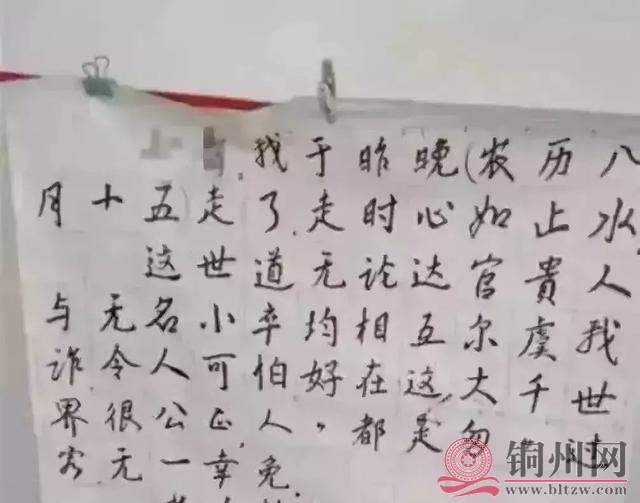 我于昨晚(农历八
月十五)走了,走时心如止水,
这世道无论达官貴人
与无名小卒均相互尔虞我
诈令人可怕,好在这大千世
界很公正,人〃都是匆〃过
客,无一幸免.
铜州网
www.bltzw.cn